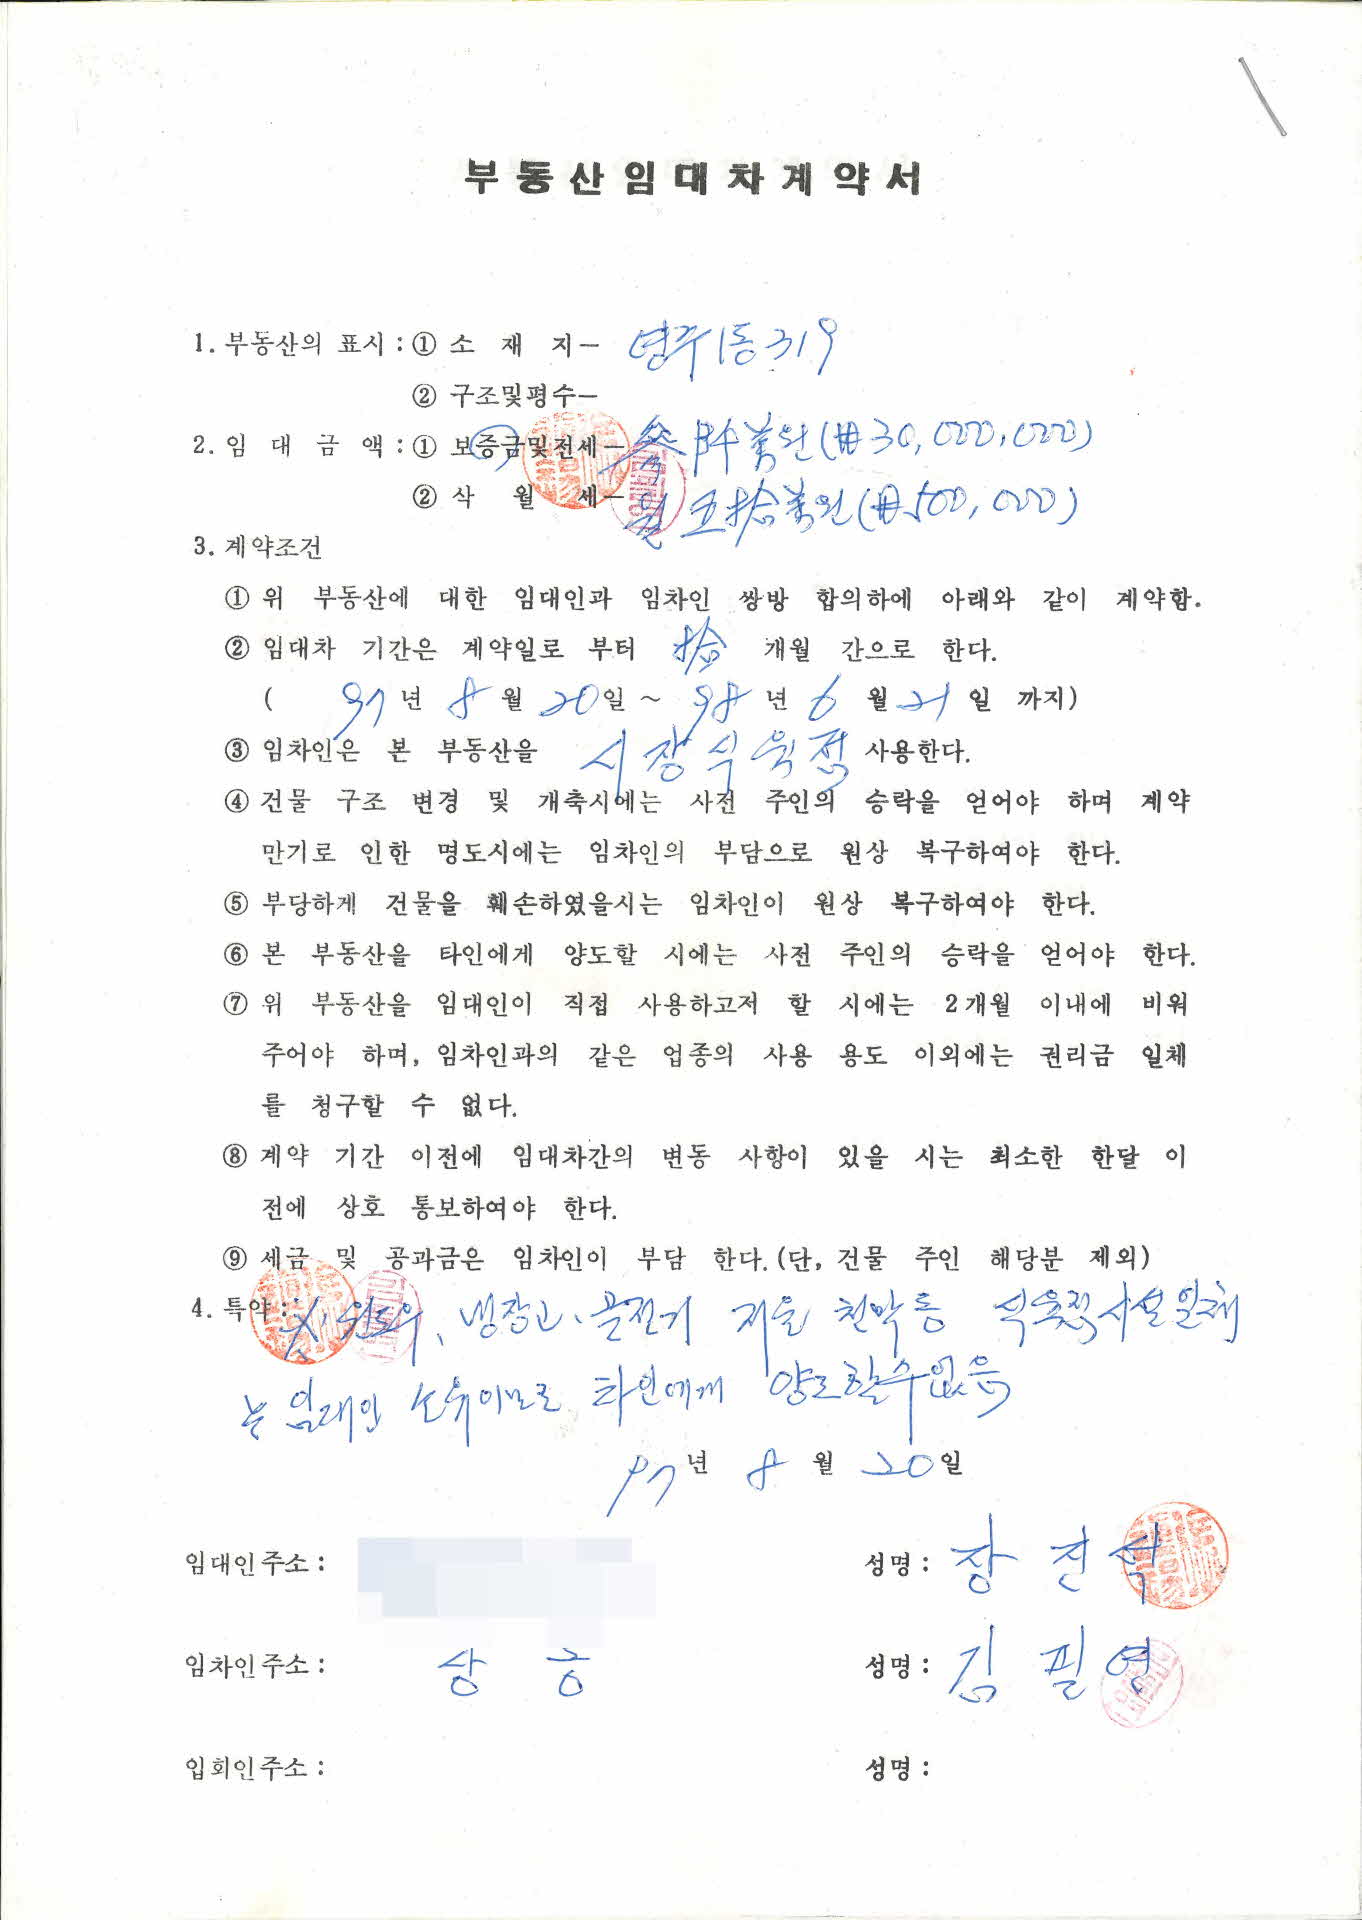 부동산임대차계약서
1. 부동산의 표시 : ① 소 재 지 - 영주1동 319
② 구조및평수 -
2. 임 대 금 액 : ① 보증금및전세 - 参阡萬원(₩30,000,000)
② 삭 월 세 - 월 五拾萬원(₩500,000)
3. 계약조건
① 위 부동산에 대한 임대인과 임차인 쌍방 합의하에 아래와 같이 계약함.
② 임대차 기간은 계약일로 부터 拾 개월 간으로 한다.
( 97년 8월 20일 ~ 98년 6월 21일 까지)
③ 임차인은 본 부동산을 시장식육점 사용한다.
④ 건물 구조 변경 및 개축시에는 사전 주인의 승락을 얻어야 하며 계약
만기로 인한 명도시에는 임차인의 부담으로 원상 복구하여야 한다.
⑤ 부당하게 건물을 훼손하였을시는 임차인이 원상 복구하여야 한다.
⑥ 본 부동산을 타인에게 양도할 시에는 사전 주인의 승락을 얻어야 한다.
⑦ 위 부동산을 임대인이 직접 사용하고저 할 시에는 2개월 이내에 비워
주어야 하며, 임차인과의 같은 업종의 사용 용도 이외에는 권리금 일체
를 청구할 수 없다.
⑧ 계약 기간 이전에 임대차간의 변동 사항이 있을 시는 최소한 한달 이
전에 상호 통보하여야 한다.
⑨ 세금 및 공과금은 임차인이 부담 한다.(단, 건물 주인 해당분 제외)
4. 특약 : 냉장고, 저울 천막등 식육점시설일체
는 임대인 소유이므로 타인에게 양도할수없음
97년 8월 20일
임대인주소 : 성명 : 장진석
임차인주소 : 상동 성명 : 김필영
입회인주소 : 성명 :